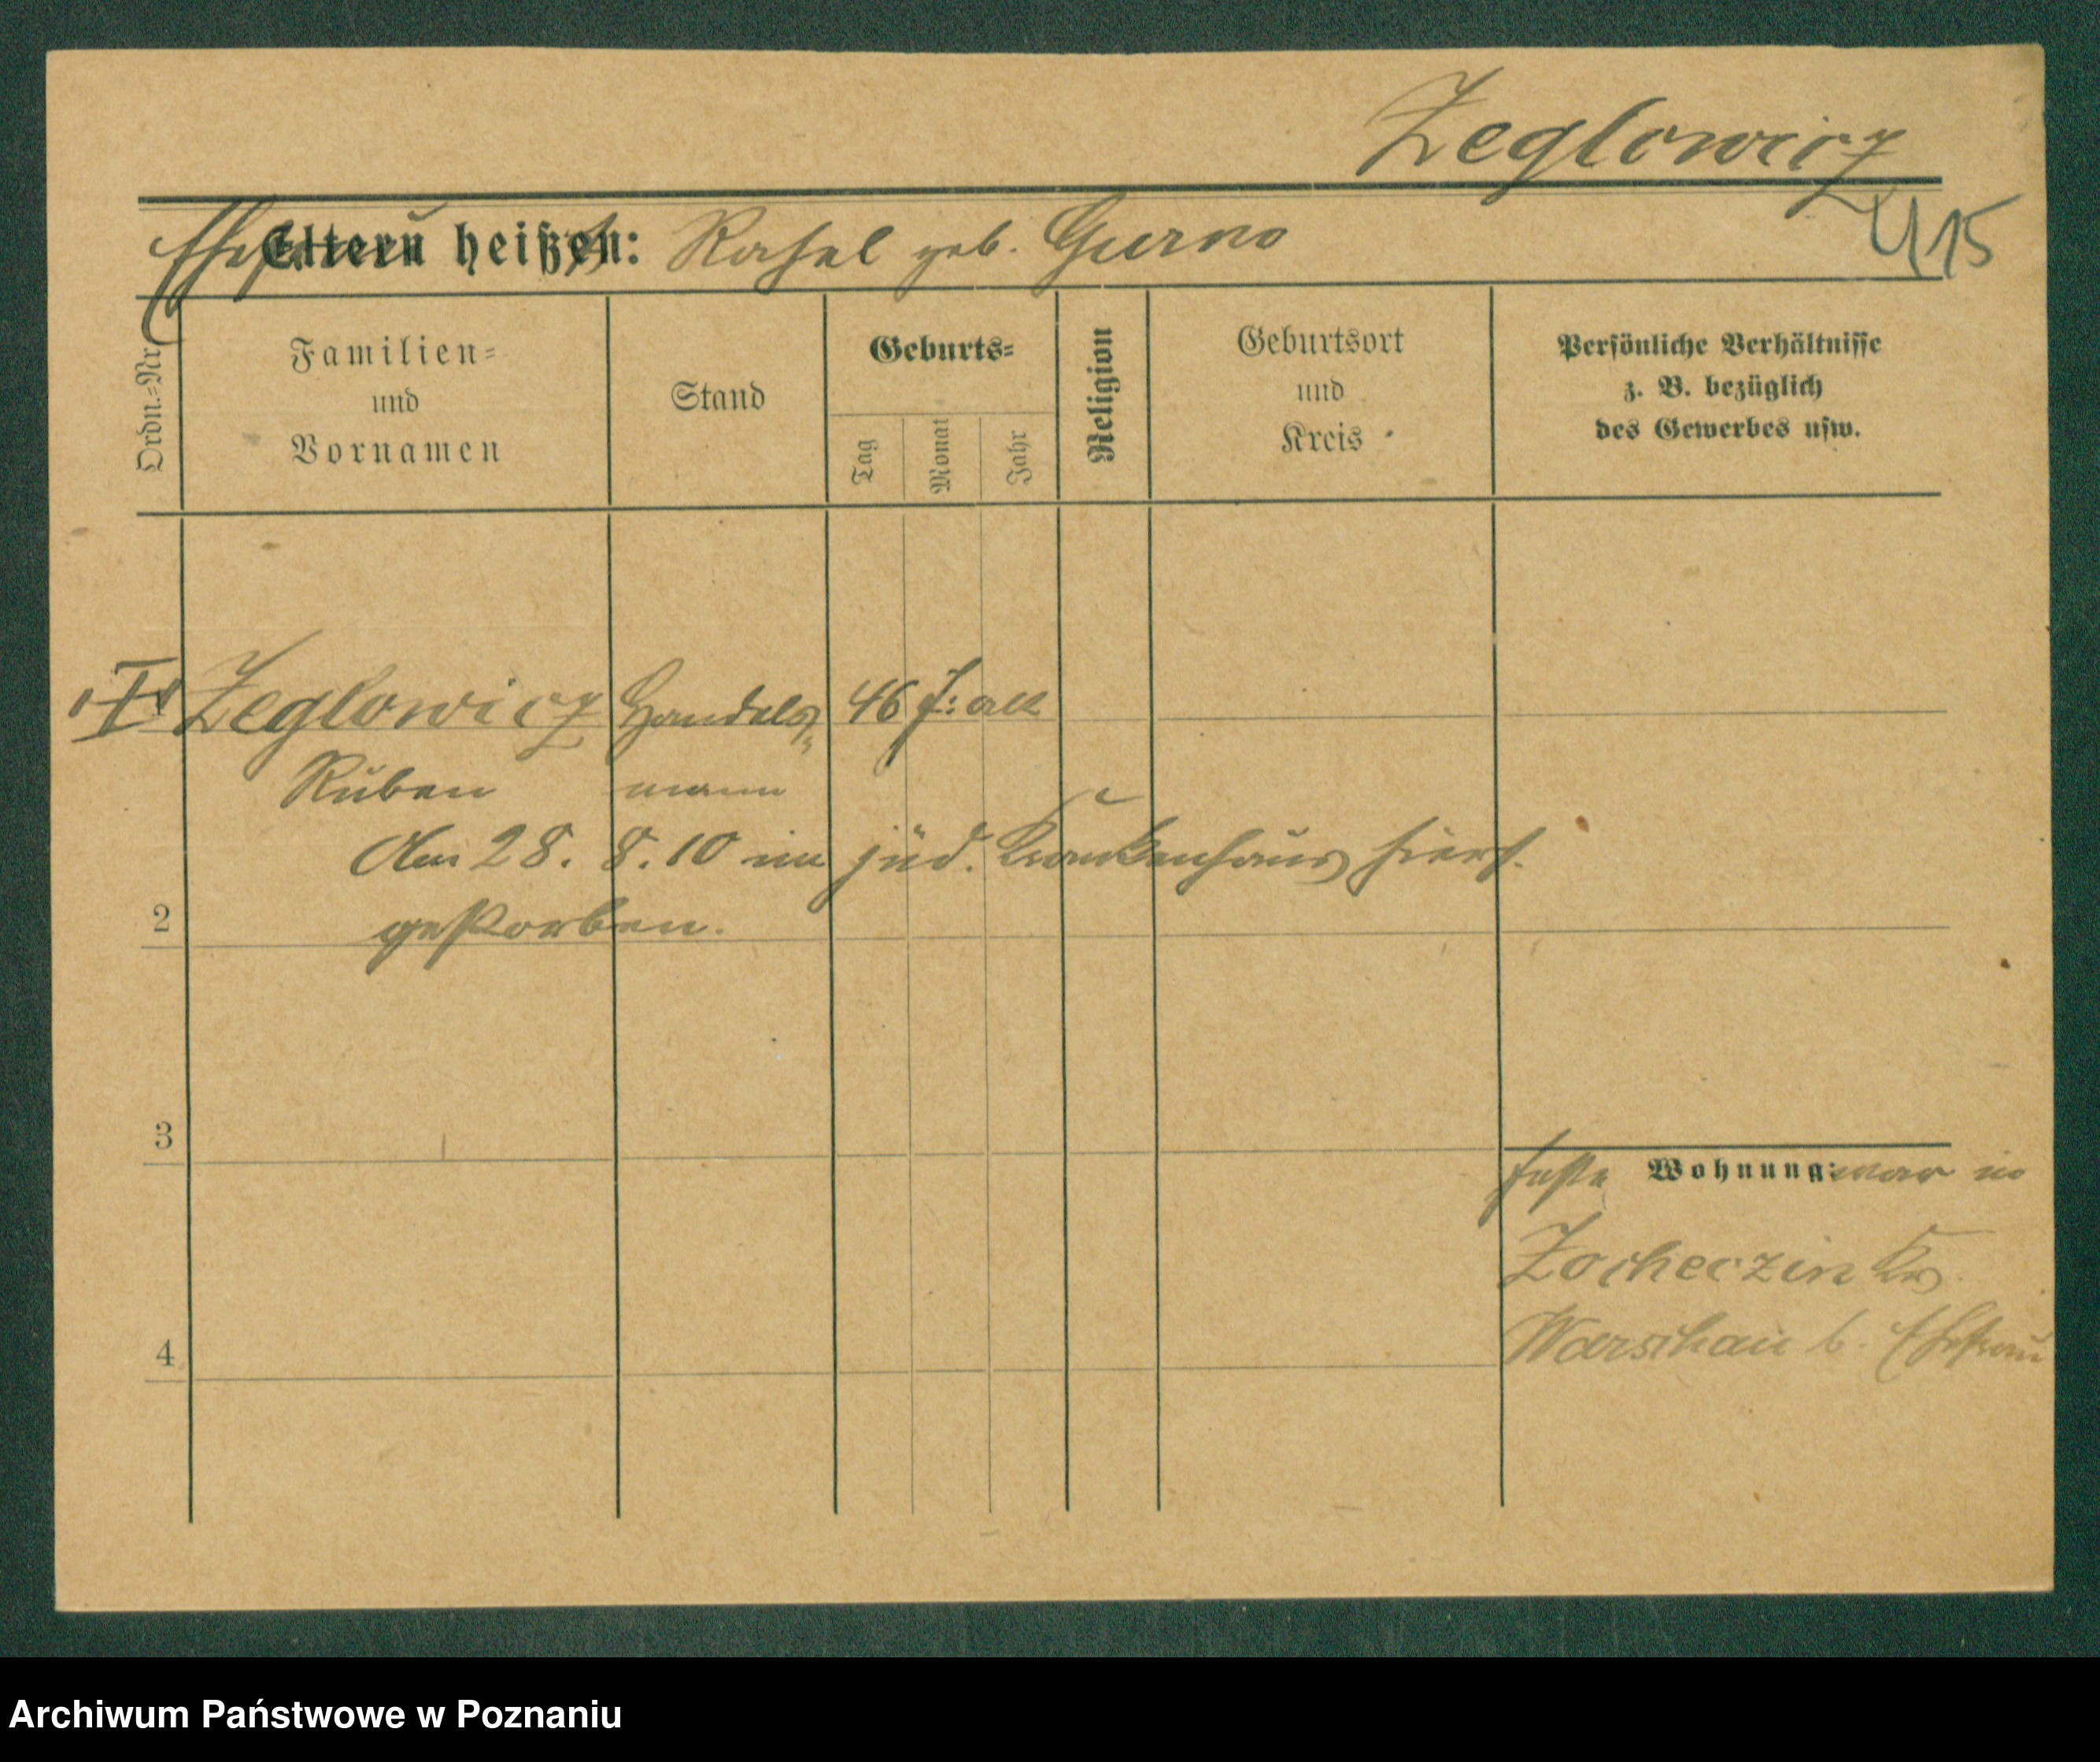 Zeglowicz
415
Ehefrau
Eltern heißen: Rahel geb. Gurno
Ordn.=Nr.
Familien=
und
Vornamen
Stand
Geburts=
Tag
Monat
Jahr
Religion
Geburtsort
und
Kreis
Persönliche Verhältnisse
z. B. bezüglich
des Gewerbes usw.
Zeglowicz Handels= 46 J: alt
Ruben mann
Am 28. 8. 10 im jüd. Krankenhaus hiers.
2 gestorben.
3
feste Wohnung: war in
Zocheczin Krs.
4 Warschau b. Ehefrau
Archiwum Państwowe w Poznaniu